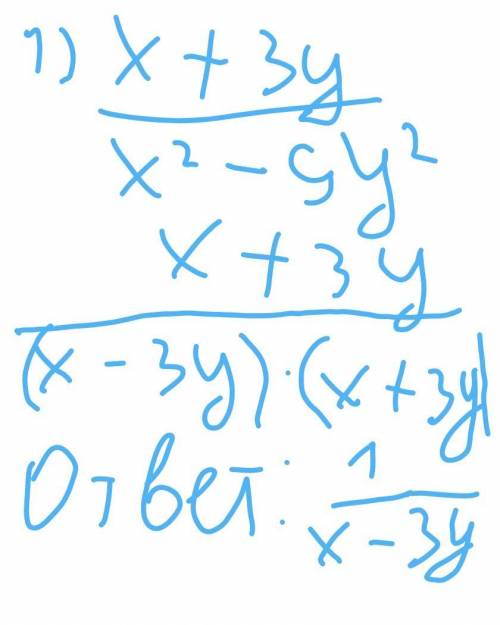 1) x + 3y
x² - 9y²
x + 3y
(x - 3y) · (x + 3y)
Ответ: 1
x - 3y